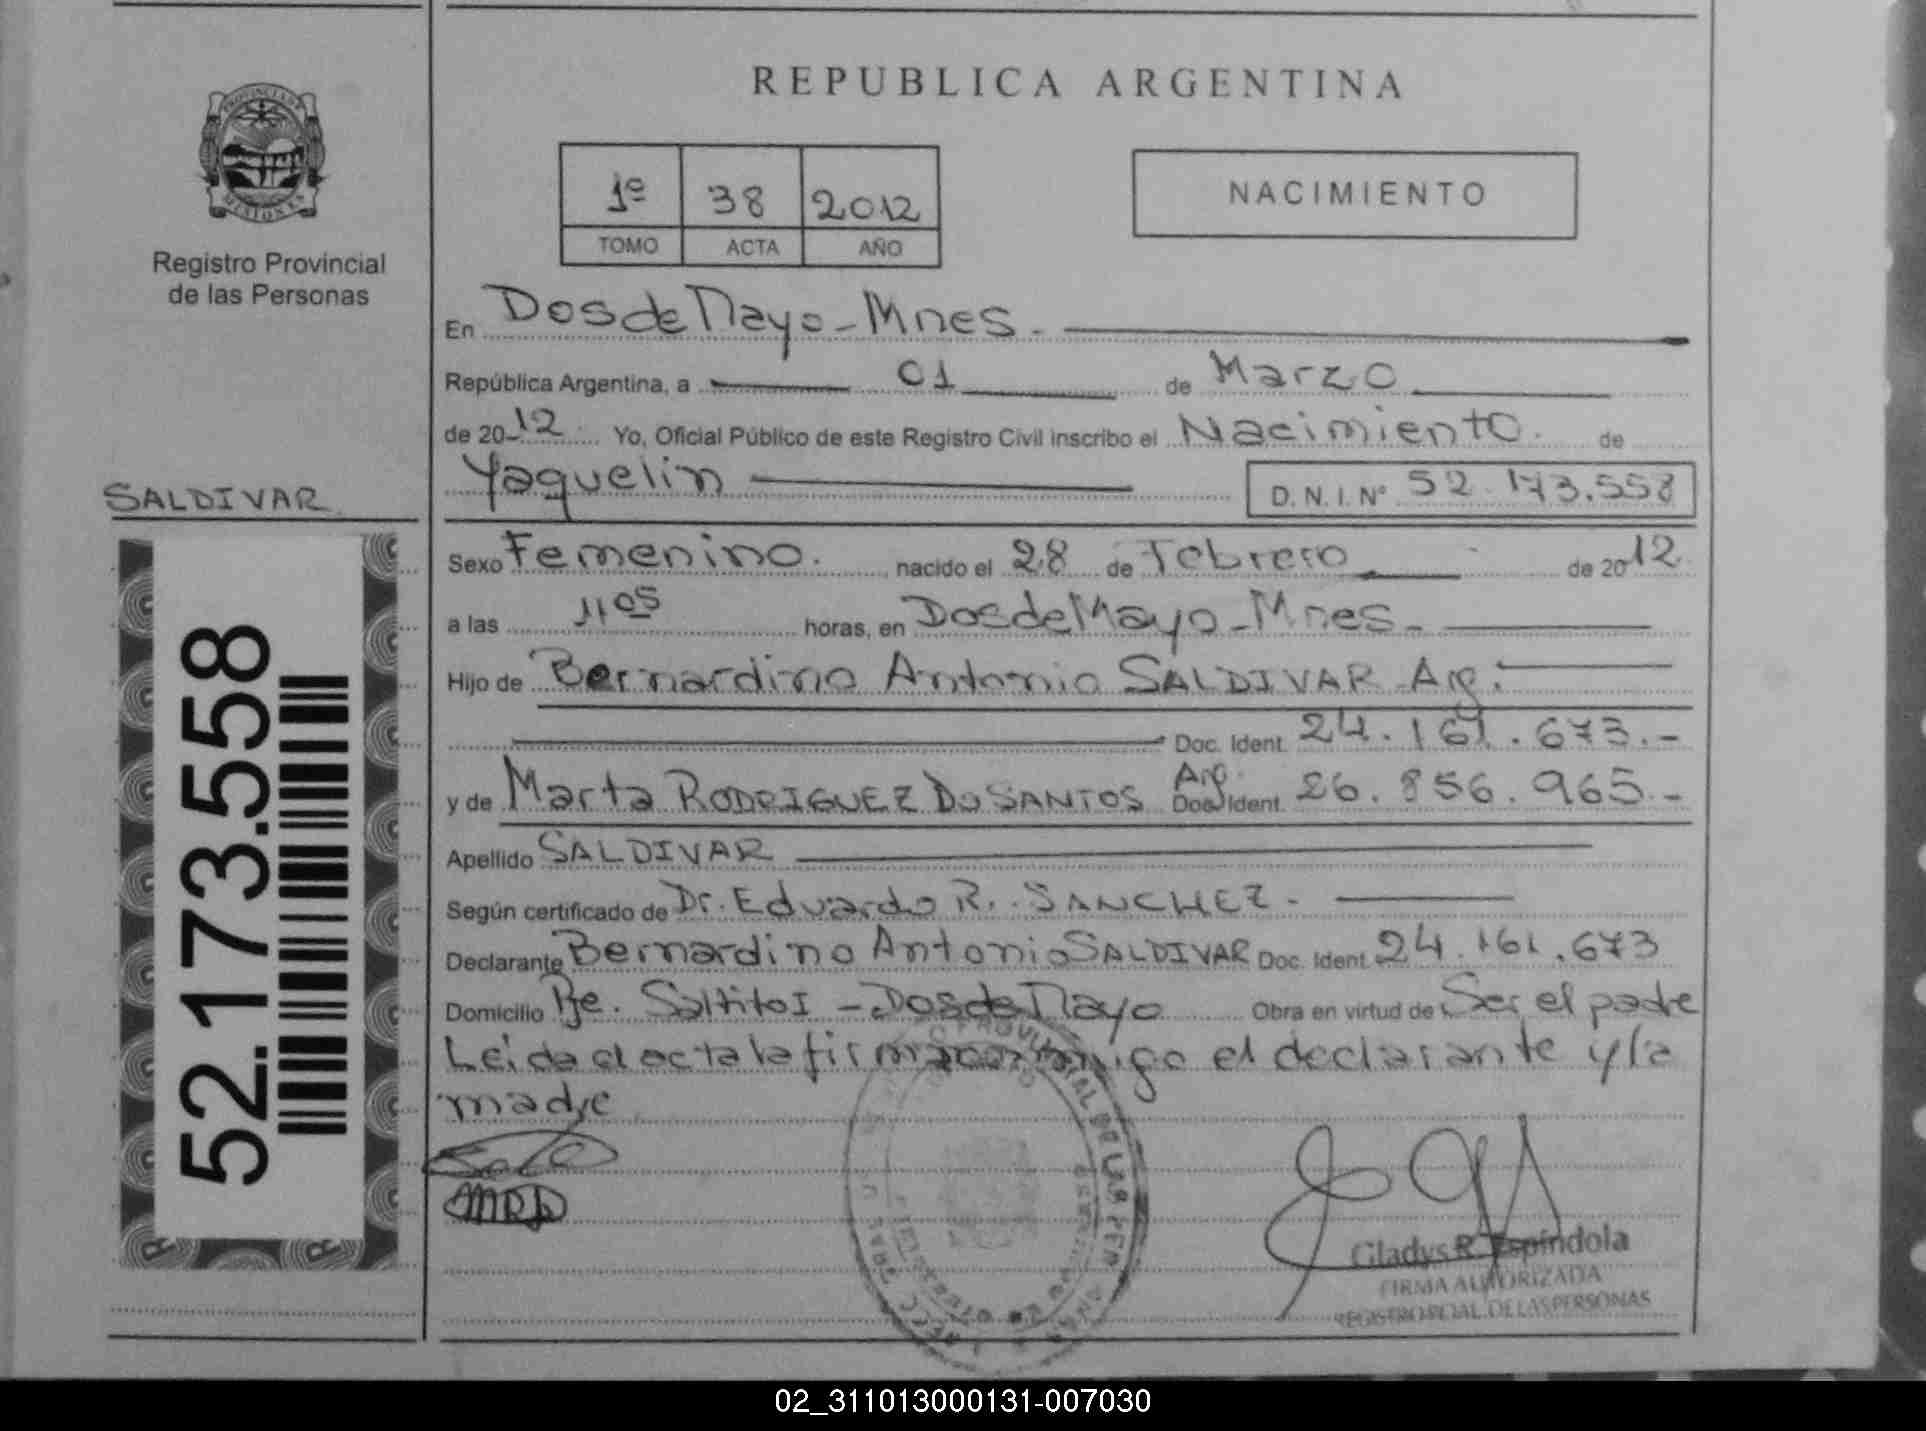 REPUBLICA ARGENTINA
PROVINCIA DE
MISIONES
Registro Provincial
de las Personas
1º 38 2012
TOMO ACTA AÑO
NACIMIENTO
En Dos de Mayo - Mnes.
República Argentina, a 01 de Marzo
de 2012 Yo, Oficial Público de este Registro Civil inscribo el Nacimiento. de
Yaquelin D.N.I. Nº 52.173.558
SALDIVAR
52.173.558
Sexo Femenino. nacido el 28 de Febrero de 2012.
a las 11 05 horas, en Dos de Mayo - Mnes.
Hijo de Bernardino Antonio SALDIVAR Arg.
Doc. Ident. 24.161.673.-
y de Marta RODRIGUEZ Do SANTOS Arg. Doc. Ident. 26.856.965.-
Apellido SALDIVAR
Según certificado de Dr. Eduardo R. SANCHEZ.
Declarante Bernardino Antonio SALDIVAR Doc. Ident. 24.161.673
Domicilio Pje. Saltito I - Dos de Mayo Obra en virtud de Ser el padre
Leida el acta la firman conmigo el declarante y la
madre
MRD
Gladys R. Espíndola
FIRMA AUTORIZADA
REGISTRO PCIAL. DE LAS PERSONAS
02_311013000131-007030